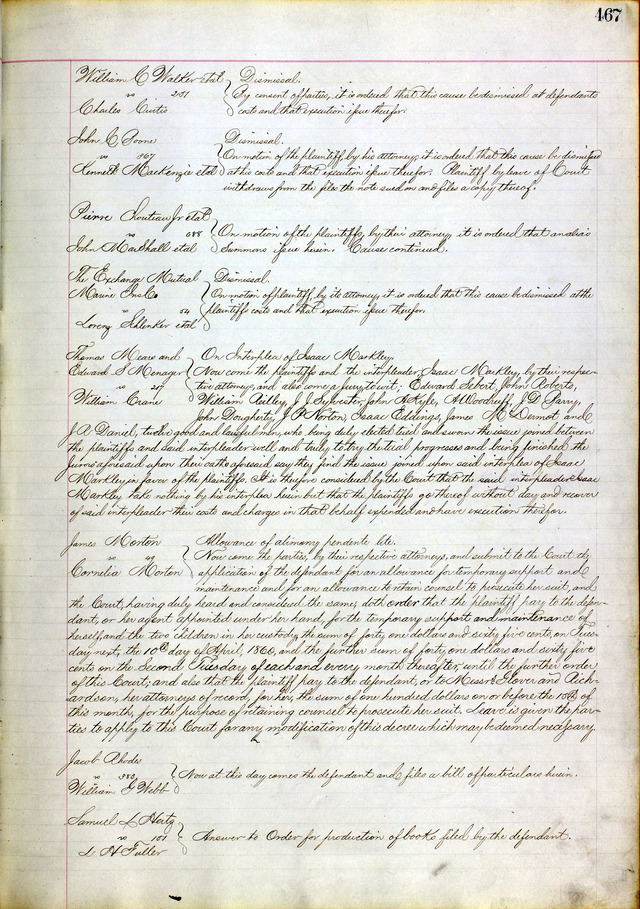 467
William C Walker et al } Dismissal.
vs 231 By consent of parties, it is ordered that this cause be dismissed at defendants
Charles Curtis costs and that execution issue therefor.
John C Boone Dismissal.
vs 367 On motion of the plaintiff by his attorney, it is ordered that this cause be dismissed
Kenneth Mackenzie et al at his costs and that execution issue therefor. Plaintiff by leave of Court
withdraws from the files the note sued on and files a copy thereof.
Pierre Chouteau Jr et al
vs 688 On motion of the plaintiffs, by their attorney it is ordered that an alias
John Marshall et al Summons issue herein. Cause continued.
The Exchange Mutual Dismissal.
Marine Ins Co On motion of plaintiff, by its attorney, it is ordered that this cause be dismissed at the
vs 54 plaintiffs costs and that execution issue therefor.
Lorenz Schlenker et al
Thomas Mears and On Interplea of Isaac Markley,
Edward S Menager Now come the plaintiffs and the interpleader, Isaac Markley, by their respec-
vs 217 tive attorneys, and also come a jury to wit: Edward Sebert, John Roberts,
William Crane William Reilley, J J Sylvester, John A Kyle, A Woodruff, J D Parry,
John Dougherty, J P Norton, Isaac Eddings, James McDermot and
J A Daniel, twelve good and lawful men, who being duly elected tried and sworn the issue joined between
the plaintiffs and said interpleader well and truly to try the trial progresses and being finished the
jurors aforesaid upon their oaths aforesaid say they find the issue joined upon said interplea of Isaac
Markley in favor of the plaintiffs. It is therefore considered by the Court that the said interpleader Isaac
Markley take nothing by his interplea herein but that the plaintiffs go thereof without day and recover
of said interpleader their costs and charges in that behalf expended and have execution therefor.
James Morton Allowance of alimony pendente lite.
vs 49 Now come the parties, by their respective attorneys, and submit to the Court the
Cornelia Morton application of the defendant for an allowance for temporary support and
maintenance and for an allowance to retain counsel to prosecute her suit, and
the Court, having duly heard and considered the same, doth order that the plaintiff pay to the defen-
dant, or her agent appointed under her hand, for the temporary support and maintenance of
herself, and the two children in her custody, the sum of forty one dollars and sixty five cents, on Tues-
day next, the 10th day of April, 1860, and the further sum of forty one dollars and sixty five
cents on the Second Tuesday of each and every month thereafter, until the further order
of this Court; and also that the plaintiff pay to the defendant, or to Messrs Glover and Rich-
ardson, her attorneys of record, for her, the sum of one hundred dollars on or before the 15th of
this month, for the purpose of retaining counsel to prosecute her suit. Leave is given the par-
ties to apply to this Court for any modification of this decree which may be deemed necessary.
Jacob Rhodes
vs 383 Now at this day comes the defendant and files a bill of particulars herein.
William G Webb
Samuel L Hertz
vs 101 Answer to Order for production of books filed by the defendant.
L H Fuller